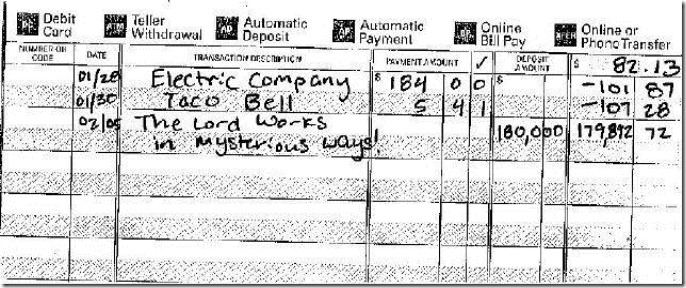 Debit Card
Teller Withdrawal
Automatic Deposit
AD
Automatic Payment
AP
Online Bill Pay
Online or Phone Transfer
NUMBER OR CODE DATE TRANSACTION DESCRIPTION PAYMENT AMOUNT ✓ DEPOSIT AMOUNT $ 82.13
01/28 Electric Company $ 184 00 $ -101 87
01/30 Taco Bell 5 41 -107 28
02/05 The Lord Works 180,000 179,892 72
in mysterious ways!